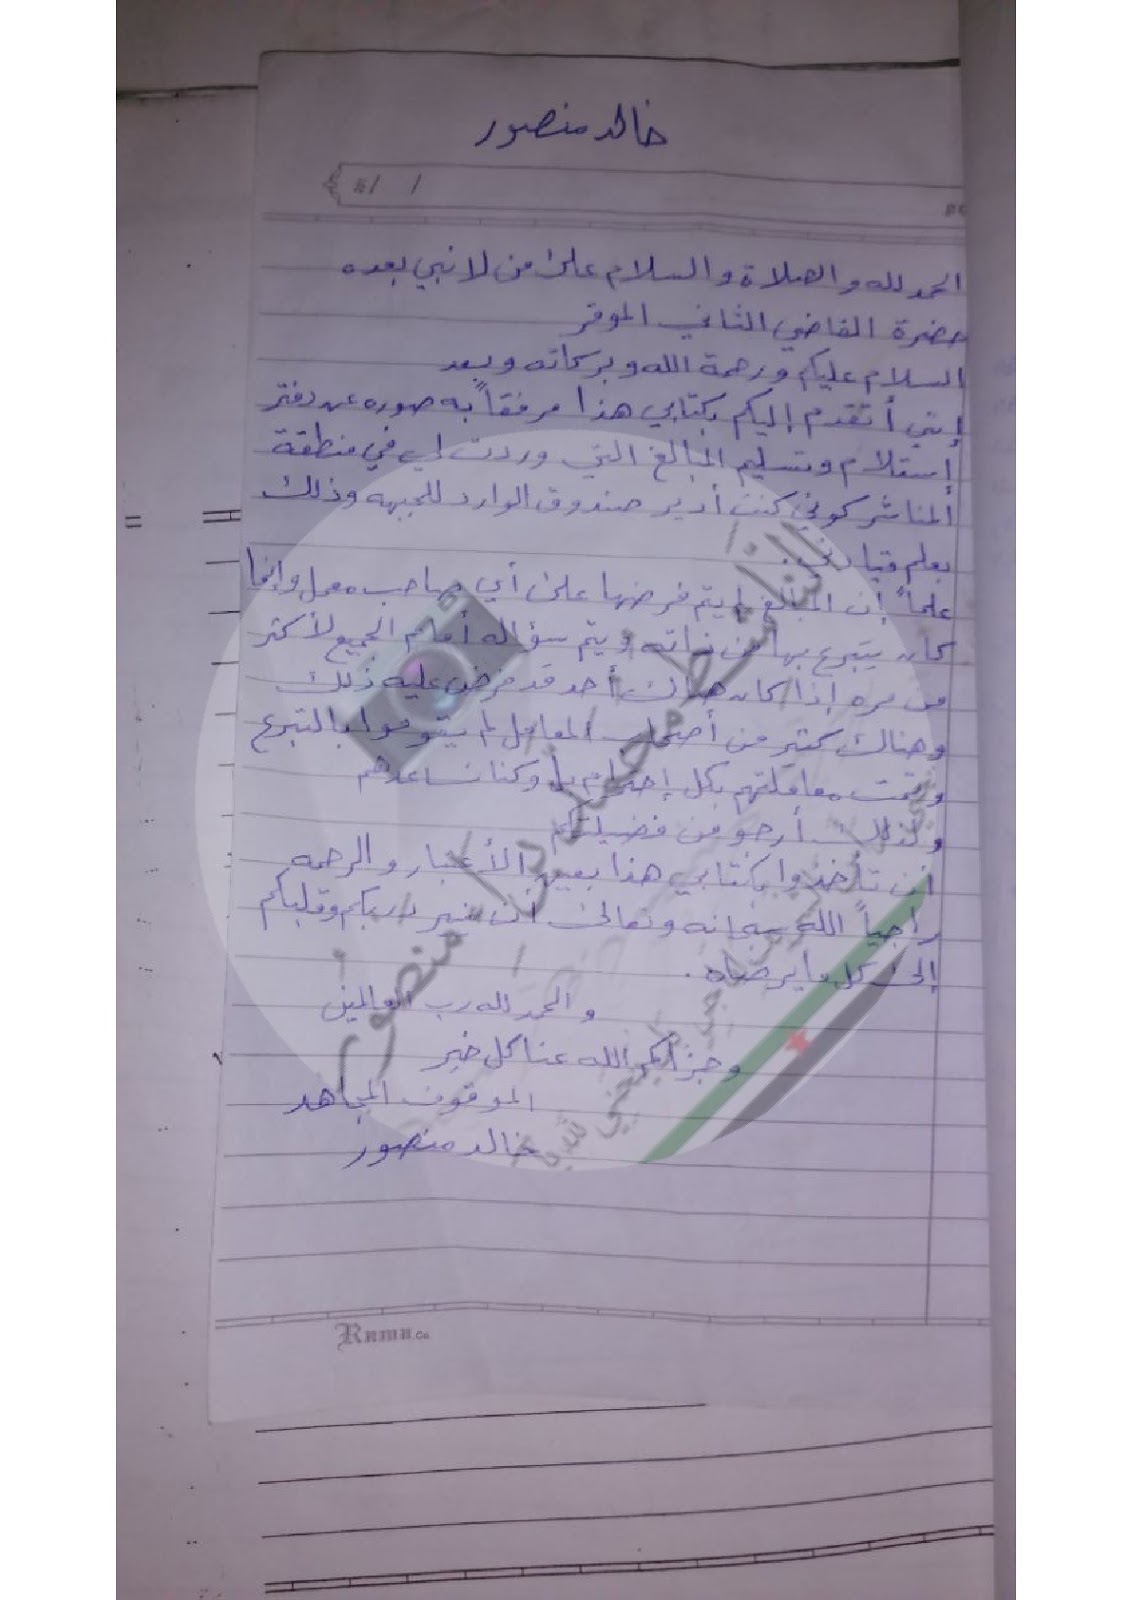 خالد منصور
الحمد لله والصلاة والسلام على من لا نبي بعده
حضرة القاضي الثاني الموقر
السلام عليكم ورحمة الله وبركاته وبعد
إنني أتقدم إليكم بكتابي هذا مرفقاً به صوره عن دفتر
إستلام وتسليم المبالغ التي وردت لي في منطقة
المناشر كوني كنت أدير صندوق الوارد للجبهه وذلك
بعلم قيادتي.
علماً أن المبالغ لم يتم فرضها على أي صاحب معمل وإنما
كان يتبرع بها من ذاته ويتم سؤاله أمام الجميع لأكثر
من مره إذا كان هناك أحد قد فرض عليه ذلك
وهناك كثير من أصحاب المعامل لم يقوموا بالتبرع
وتمت معاملتهم بكل إحترام بل وكنا نساعدهم
ولذلك أرجو من فضيلتكم
أن تأخذوا بكتابي هذا بعين الأعتبار والرحمه
راجياً الله سبحانه وتعالى أن ينير دربكم وقلبكم
إلى كل ما يرضاه.
والحمد لله رب العالمين
وجزاكم الله عنا كل خير
الموقوف المجاهد
خالد منصور
Rama.Co